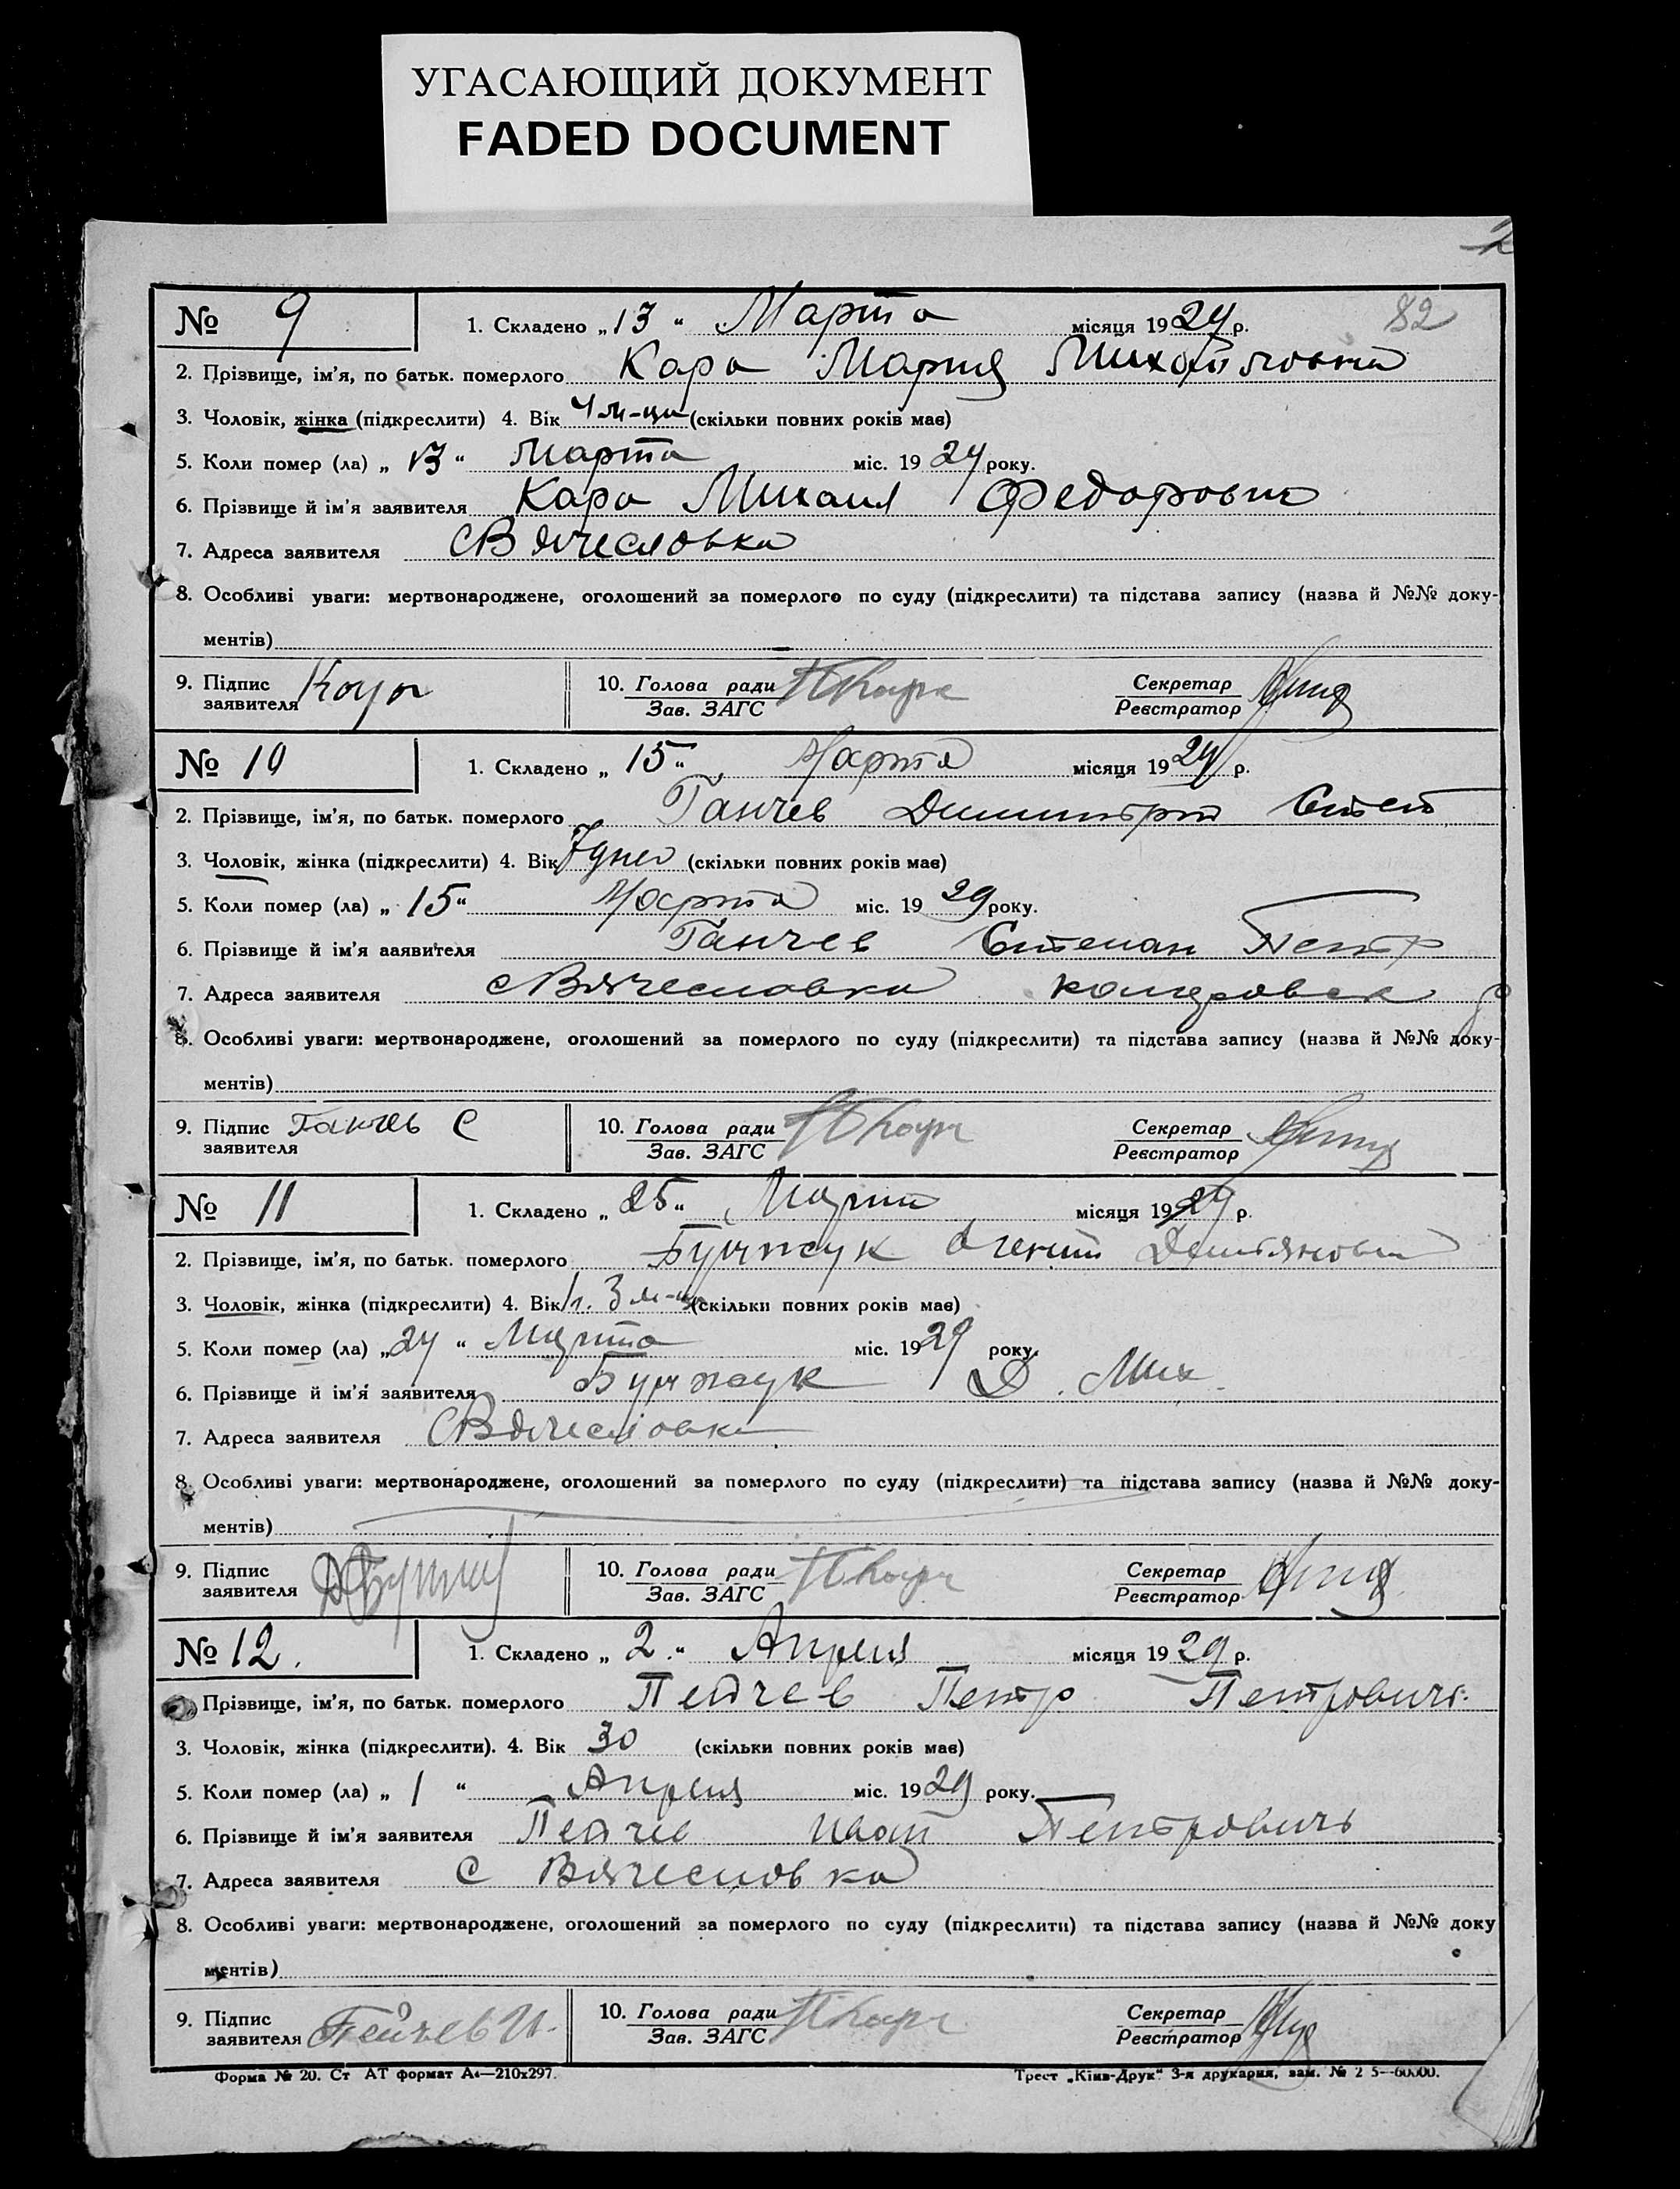 УГАСАЮЩИЙ ДОКУМЕНТ
FADED DOCUMENT
2
82
№ 9 1. Складено „13“ Марта місяця 1929 р.
2. Прізвище, ім'я, по батьк. померлого Кара Мария Михайловна
3. Чоловік, жінка (підкреслити) 4. Вік 4 м-ца (скільки повних років має)
5. Коли помер (ла) „13“ Марта міс. 1929 року.
6. Прізвище й ім'я заявителя Кара Михаил Федорович
7. Адреса заявителя с Вячесловка
8. Особливі уваги: мертвонароджене, оголошений за померлого по суду (підкреслити) та підстава запису (назва й №№ доку-
ментів)
9. Підпис заявителя Кара 10. Голова ради Зав. ЗАГС Секретар Реєстратор
№ 10 1. Складено „15“ Марта місяця 1929 р.
2. Прізвище, ім'я, по батьк. померлого Ганчев Димитрий Степ
3. Чоловік, жінка (підкреслити) 4. Вік 7 дней (скільки повних років має)
5. Коли помер (ла) „15“ Марта міс. 1929 року.
6. Прізвище й ім'я заявителя Ганчев Степан Петр
7. Адреса заявителя с Вячесловка
8. Особливі уваги: мертвонароджене, оголошений за померлого по суду (підкреслити) та підстава запису (назва й №№ доку-
ментів)
9. Підпис заявителя Ганчев С 10. Голова ради Зав. ЗАГС Секретар Реєстратор
№ 11 1. Складено „25“ Марта місяця 1929 р.
2. Прізвище, ім'я, по батьк. померлого
3. Чоловік, жінка (підкреслити) 4. Вік 1 г. 3 м-ца (скільки повних років має)
5. Коли помер (ла) „24“ Марта міс. 1929 року.
6. Прізвище й ім'я заявителя Д. Мих.
7. Адреса заявителя с Вячесловка
8. Особливі уваги: мертвонароджене, оголошений за померлого по суду (підкреслити) та підстава запису (назва й №№ доку-
ментів)
9. Підпис заявителя 10. Голова ради Зав. ЗАГС Секретар Реєстратор
№ 12. 1. Складено „2.“ Апреля місяця 1929 р.
Прізвище, ім'я, по батьк. померлого Пейчев Петр Петровичъ.
3. Чоловік, жінка (підкреслити). 4. Вік 30 (скільки повних років має)
5. Коли помер (ла) „1“ Апреля міс. 1929 року.
6. Прізвище й ім'я заявителя Пейчев Иван Петровичъ
7. Адреса заявителя с Вячесловка
8. Особливі уваги: мертвонароджене, оголошений за померлого по суду (підкреслити) та підстава запису (назва й №№ доку
ментів)
9. Підпис заявителя Пейчев И. 10. Голова ради Зав. ЗАГС Секретар Реєстратор
Форма № 20. Ст АТ формат А4—210x297. Трест „Київ-Друк“ 3-я друкарня, зам. № 2 5—60000.